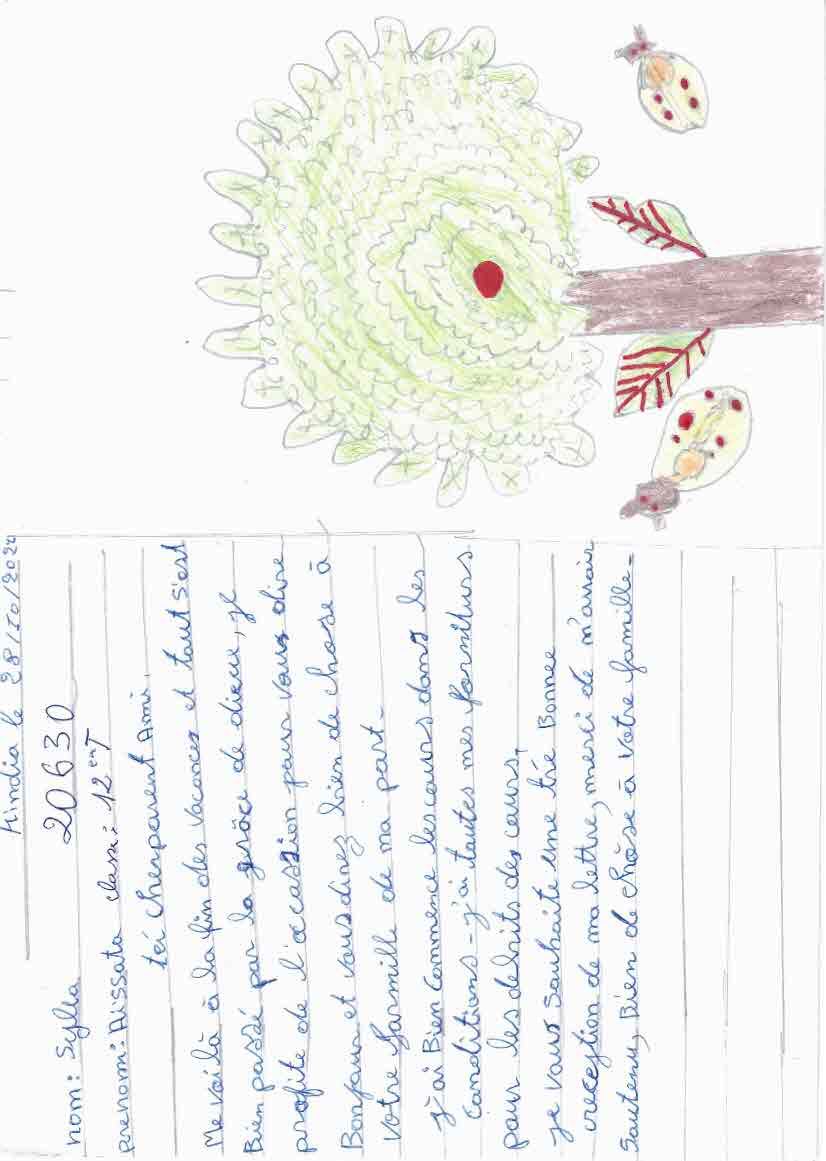 Kindia le 28/10/2020
nom: Sylla 20630
prenom: Aissata class: 12 en T
tré cherparent Ami.
Me voilà à la fin des vacances et tout s'est
Bien passé par la grâce de dieu, je
profite de l'occassion pour vous dire
Bonjour et vous direz bien de chose à
votre farmille de ma part-
j'ai Bien Commence les cours dans les
Conditions - j'ai toutes mes fornitures
pour les debits des cours,
je vous souhaite une tré Bonnee
creception de ma lettre, merci de m'avoir
Soutenu, Bien de chôse à votre famille-